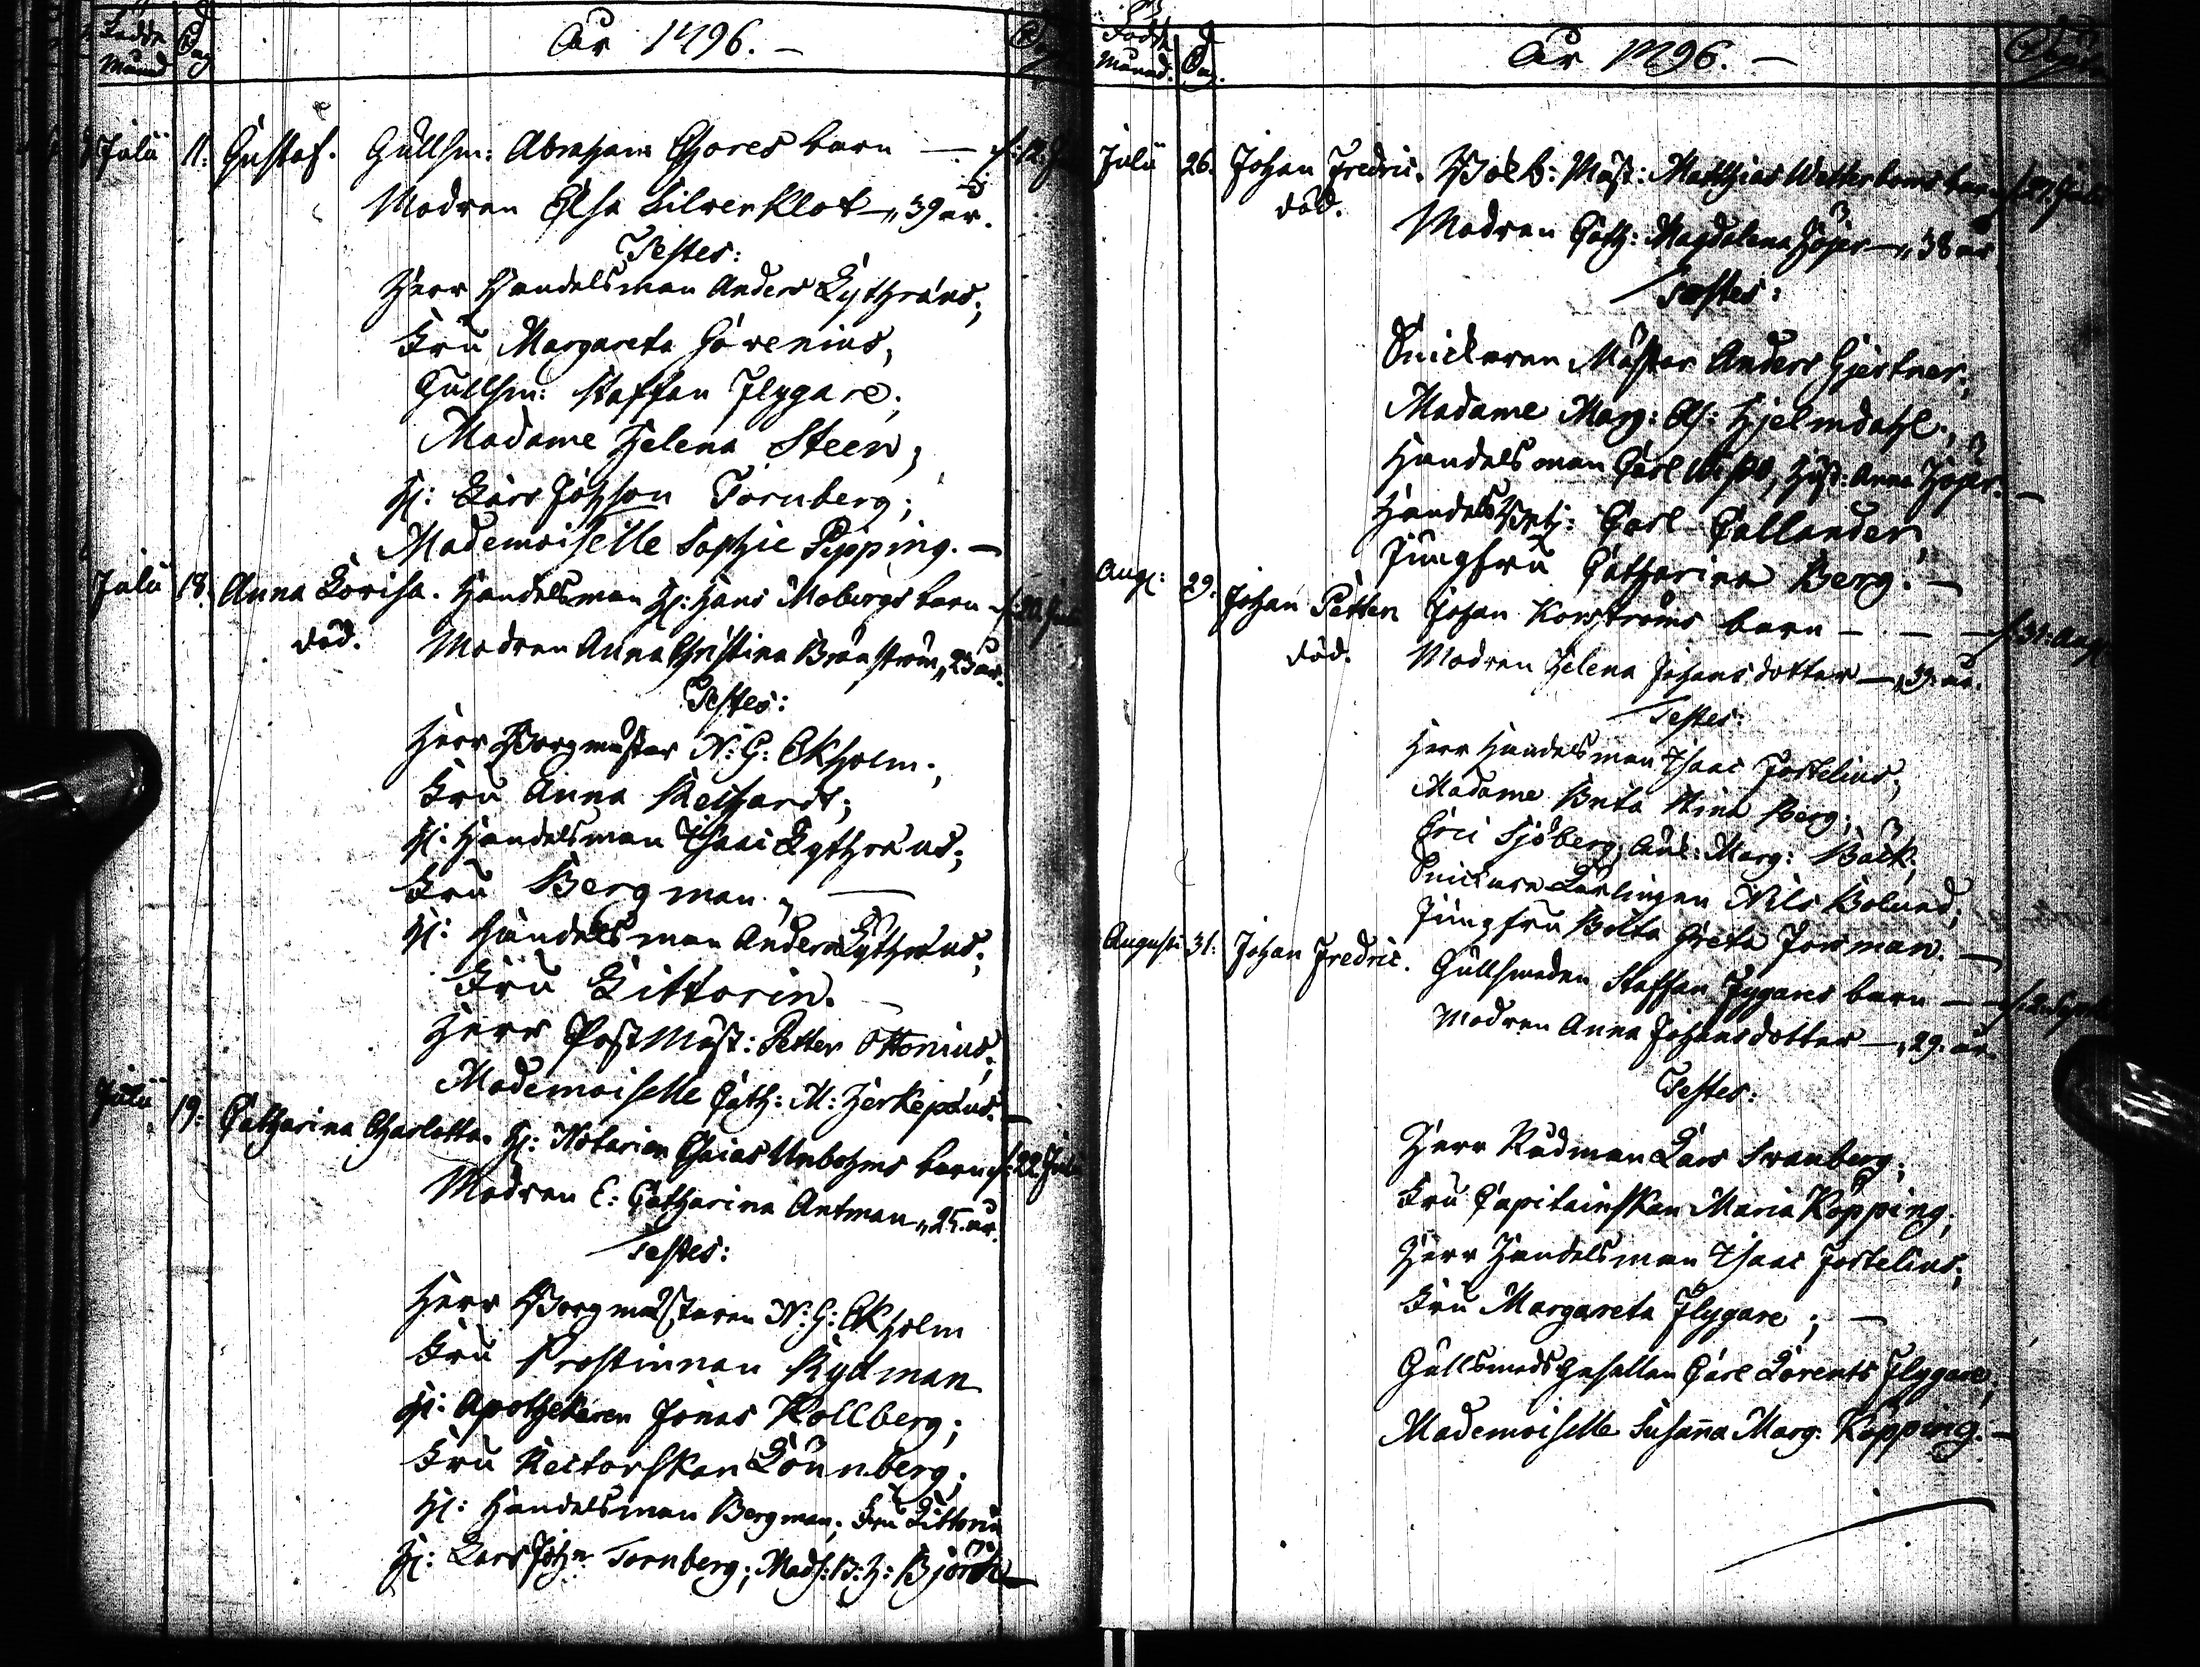 Födde Månad Dag År 1796. –
Julii 11. Gustaf. Gullsm: Abraham Thores barn — d: 12. Ju
Modren Elsa Silverklot —„ 39 år.
Testes:
Herr Handelsman Anders Lythræus;
Fru Margareta Govenius,
Gullsm: Staffan Flygare;
Madame Helena Steen;
H: Lars Johsson Tornberg;
Mademoiselle Sophie Pipping. —
Julii 18. Anna Lovisa. Handelsman H: Hans Mobergs barn
död. Modren Anna Christina Brånström„ 23 år.
Testes:
Herr Borgmästar N: G: Ekholm;
Fru Anna
H: Handelsman Isaac Lythræus;
Fru Bergman; —
H: Handelsman Anders Lythræus;
Fru Littorin. –
Herr PostMäst: Petter Ottonius;
Mademoiselle Cath: M: Herkepæus. —
Julii 19. Catharina Charlotta. H: Notarien Esaias Unbohms barn d: 22 Julii
Modren E: Catharina Antman„ 25. år.
Testes:
Herr Borgmästaren N: G: Ekholm
Fru Prostinnan Rydman
H: Apothekaren Jonas Kollberg;
Fru Rectorskan Lönnberg;
H: Handelsman Bergman; Fru Littorin
H: Lars Johsn Tornberg; Mads: B: H: Björck —
Födde Månad. Dag. År 1796. —
Julii 26. Johan Fredric. Bokb: Mäst: Matthias Wetterboms barn d. 27. Julii
död. Modren Cath: Magdalena Höjer —„ 38 år
Testes:
Snickaren Mästar Anders Gjertner;
Madame Marg: Els: Hjelmdahl;
Handelsman Carl Hust: Anna Höjer. —
Handels Betj: Carl Callander,
Jungfru Catharina Berg. —
Aug: 29. Johan Petter Johan Korströms barn — — d. 31. Aug
död. Modren Helena Johansdotter —„ 39. år.
Testes:
Herr Handelsman Isaac Fortelius;
Madame Brita Stina Berg;
Eric Sjöberg, Marg: Bäck,
Snickare Lärlingen Nils Bolund,
Jungfru Brita Greta Forsman. —
Augusti 31. Johan Fredric. Gullsmeden Staffan Flygares barn — d. 2. Sept
Modren Anna Johansdotter —„ 29. år.
Testes:
Herr Rådman Lars Svanberg;
Fru Capitainskan Maria Köpping;
Herr Handelsman Isaac Fortelius;
Fru Margareta Flygare; —
Gullsmeds Gesällen Carl Lorents Flygare;
Mademoiselle Susaña Marg: Köpping. —